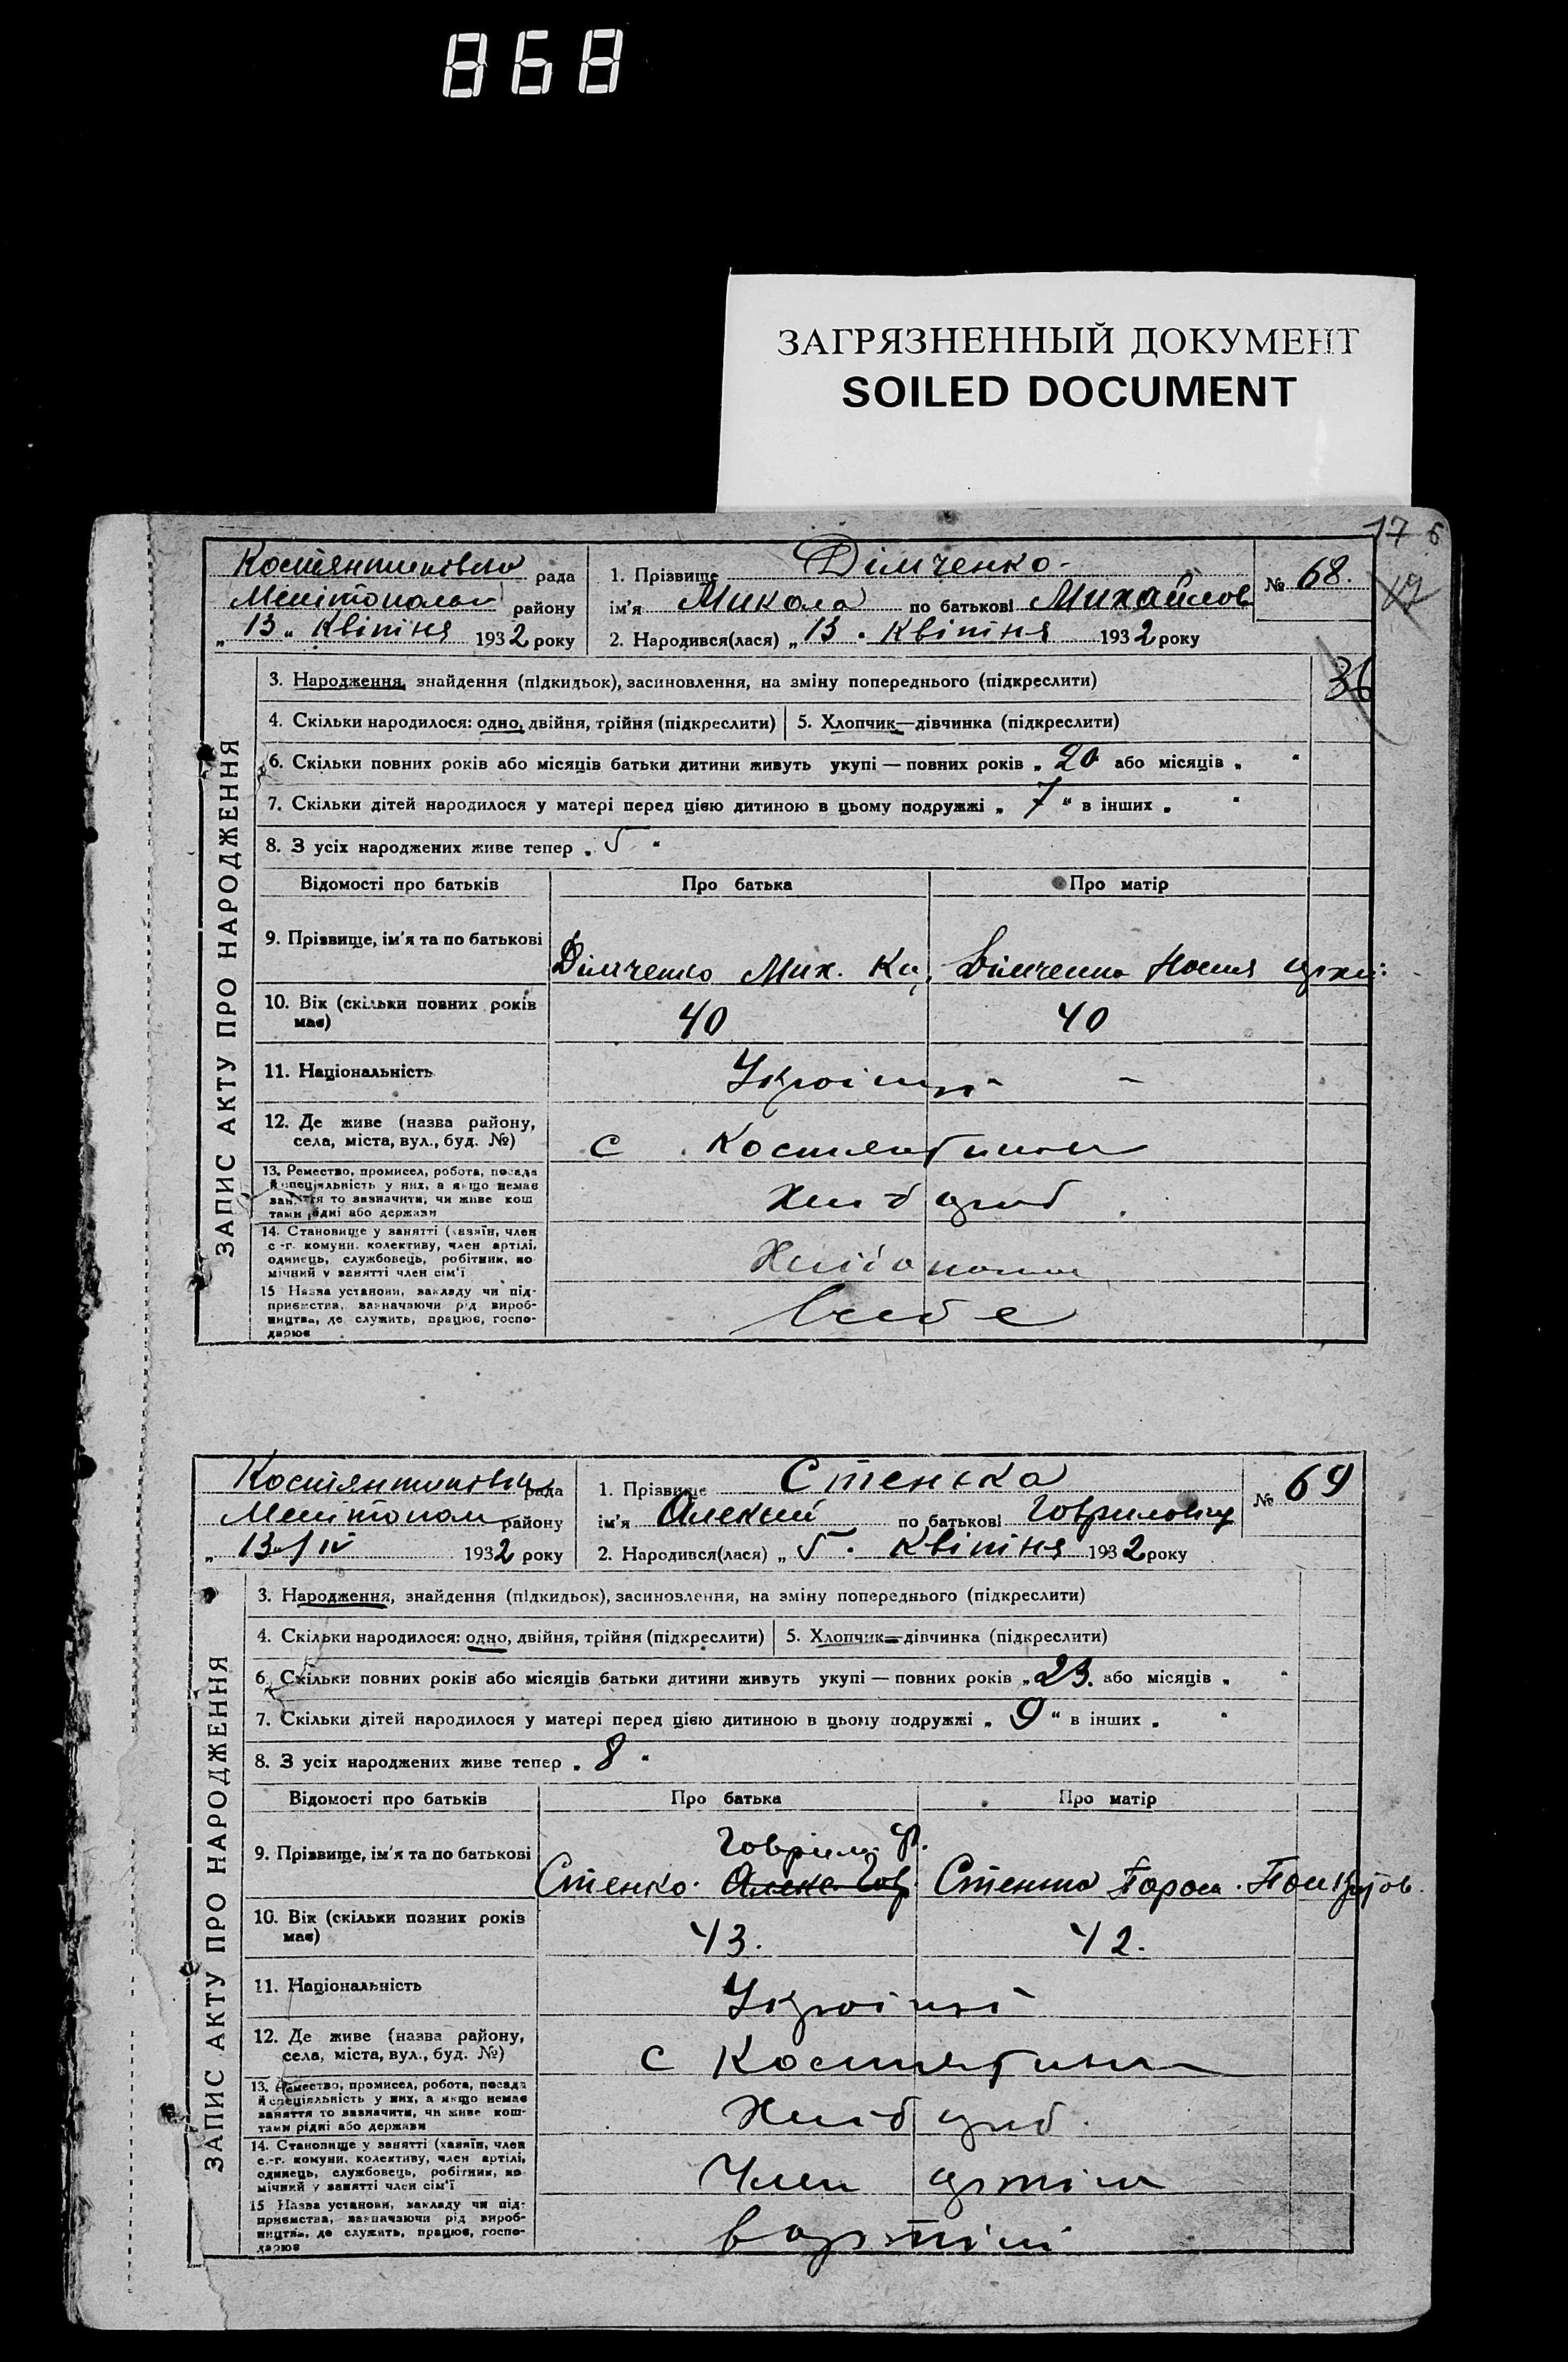 868
ЗАГРЯЗНЕННЫЙ ДОКУМЕНТ
SOILED DOCUMENT
17 6
рада
району
"13" Квітня 1932 року
1. Прізвище Дімченко
ім'я Микола по батькові Михайлов
2. Народився(лася) "13" Квітня 1932 року
№ 68.
36
ЗАПИС АКТУ ПРО НАРОДЖЕННЯ
3. Народження, знайдення (підкидьок), засиновлення, на зміну попереднього (підкреслити)
4. Скільки народилося: одно, двійня, трійня (підкреслити) 5. Хлопчик—дівчинка (підкреслити)
6. Скільки повних років або місяців батьки дитини живуть укупі — повних років „ 20 або місяців „ "
7. Скільки дітей народилося у матері перед цією дитиною в цьому подружжі „ 7 " в інших „ "
8. З усіх народжених живе тепер „ 5 "
Відомості про батьків Про батька Про матір
9. Прізвище, ім'я та по батькові
Дімченко Мих.
10. Вік (скільки повних років
має)
40 40
11. Національність
12. Де живе (назва району,
села, міста, вул., буд. №)
с
13. Ремество, промисел, робота, посада
й спеціяльність у них, а якщо немає
заняття то зазначити, чи живе кош
тами рідні або держави
14. Становище у занятті (хазяїн, член
с.-г. комуни, колективу, член артілі,
одинець, службовець, робітник, по
мічний у занятті член сім'ї
15 Назва установи, закладу чи під-
приємства, зазначаючи рід вироб-
ництва, де служить, працює, госпо-
дарює
рада
району
"13/IV 1932 року
1. Прізвище Стенька
ім'я Алексий по батькові
2. Народився(лася) „ 5 " Квітня 1932 року
№ 69
ЗАПИС АКТУ ПРО НАРОДЖЕННЯ
3. Народження, знайдення (підкидьок), засиновлення, на зміну попереднього (підкреслити)
4. Скільки народилося: одно, двійня, трійня (підкреслити) 5. Хлопчик—дівчинка (підкреслити)
6. Скільки повних років або місяців батьки дитини живуть укупі — повних років „ 23. або місяців „ "
7. Скільки дітей народилося у матері перед цією дитиною в цьому подружжі „ 9 " в інших „ "
8. З усіх народжених живе тепер „ 8 "
Відомості про батьків Про батька Про матір
9. Прізвище, ім'я та по батькові
Стенко
10. Вік (скільки повних років
має)
43. 42.
11. Національність
12. Де живе (назва району,
села, міста, вул., буд. №)
с
13. Ремество, промисел, робота, посада
й спеціяльність у них, а якщо немає
заняття то зазначити, чи живе кош-
тами рідні або держави
14. Становище у занятті (хазяїн, член
с.-г. комуни, колективу, член артілі,
одинець, службовець, робітник, по
мічний у занятті член сім'ї
Член артіли
15 Назва установи, закладу чи під-
приємства, зазначаючи рід вироб-
ництва, де служить, працює, госпо-
дарює
в артілі